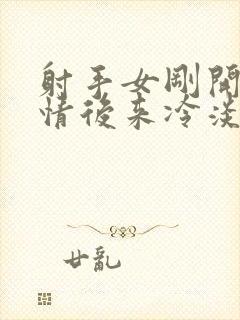 射手女剛開
情後來冷淡
廿亂